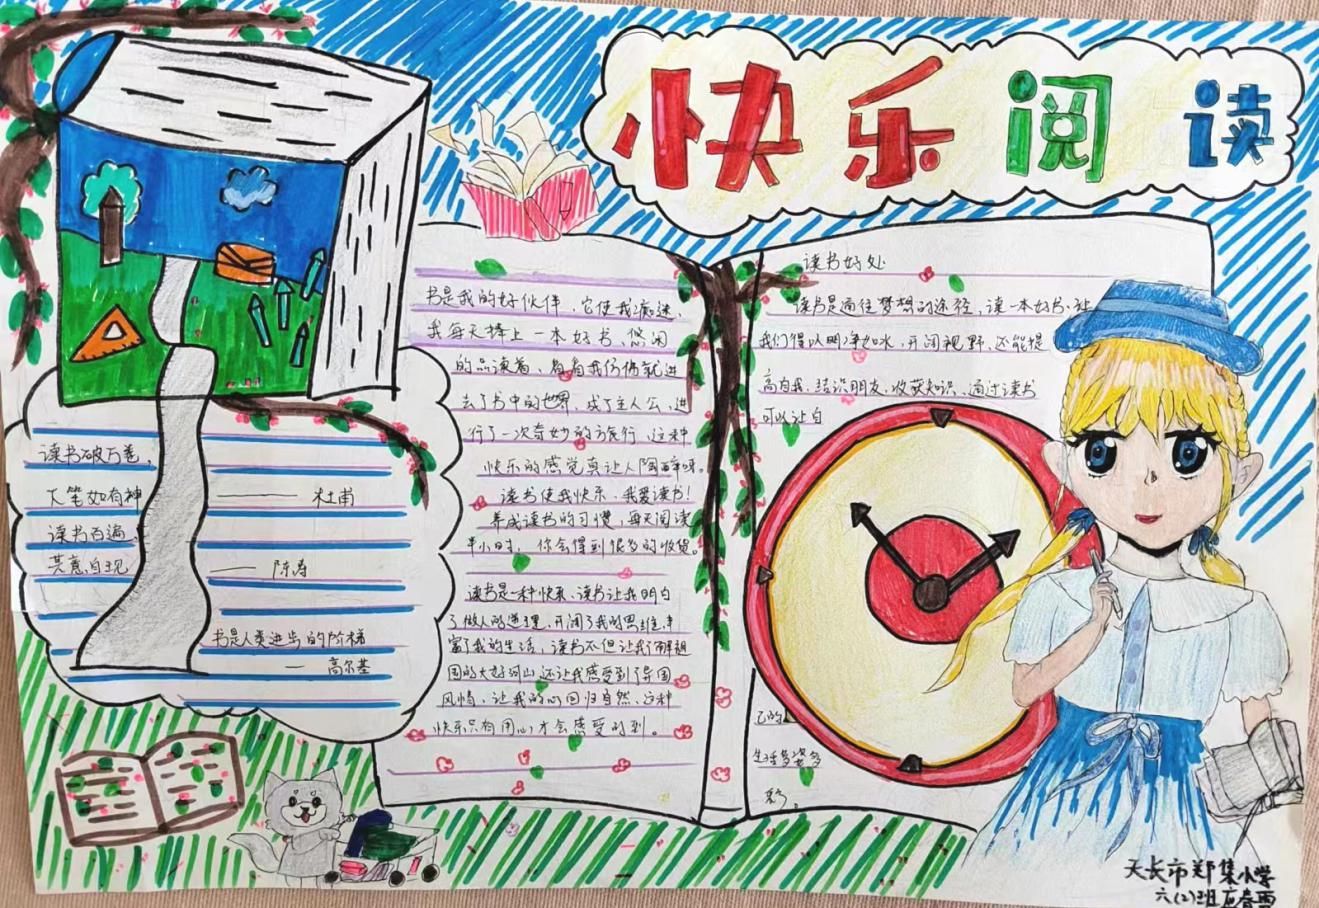 快乐阅读
读书破万卷，
大笔如有神
—— 杜甫
读书百遍，
其意自现
—— 陈寿
书是人类进步的阶梯
— 高尔基
书是我的好伙伴，它使我痴迷，
我每天捧上一本好书、悠闲
的品读着，看着我仿佛就进
去了书中的世界，成了主人公，进
行了一次奇妙的旅行，这种
快乐的感觉真让人陶醉呀。
读书使我快乐，我爱读书！
养成读书的习惯，每天阅读
半小时，你会得到很多的收货。
读书是一种快乐、读书让我明白
了做人的道理，开阔了我的思维，丰
富了我的生活，读书不但让我了解祖
国的大好河山，还让我感受到了异国
风情，让我的心回归自然、这种
快乐只有用心才会感受的到。
读书好处
读书是通往梦想的途径，读一本好书、让
我们得以明净如水，开阔视野，还能提
高自我，结识朋友，收获知识、通过读书
可以让自
己的
生活多姿多
彩。
天长市郑集小学
六(2)班 春雨